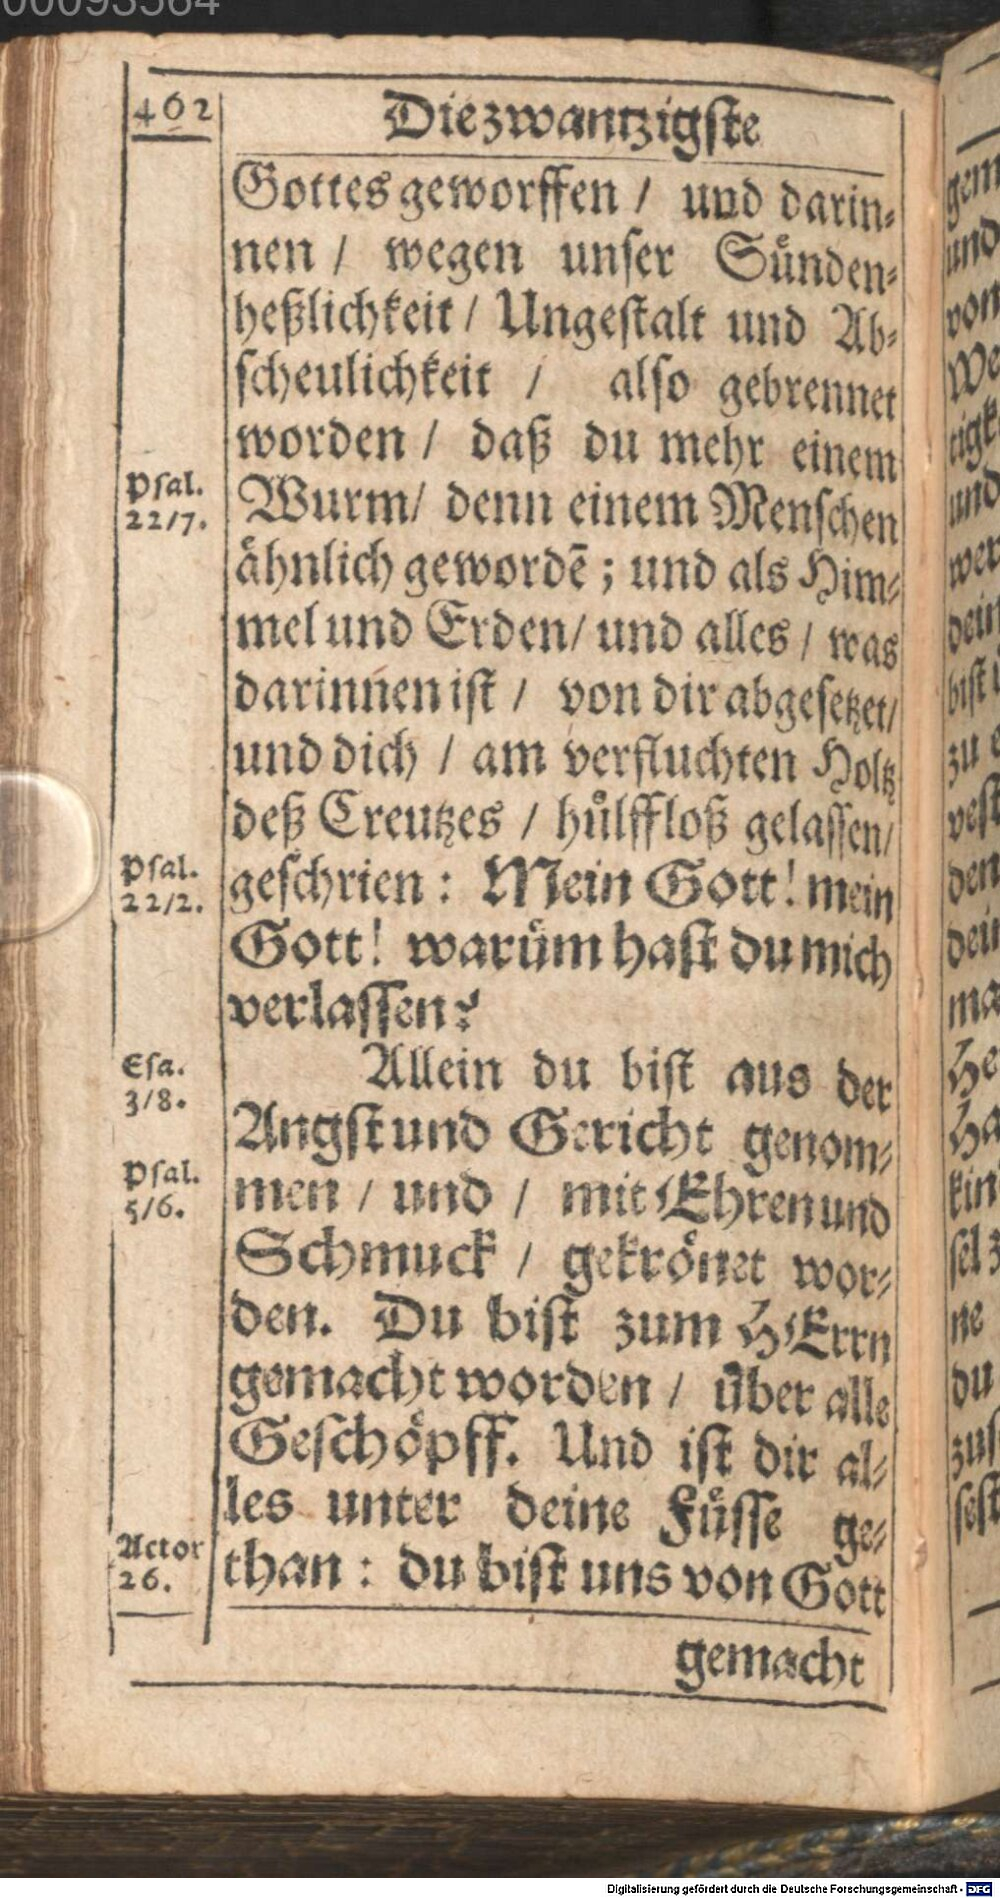 462
Die zwantzigste
Gottes geworffen / und darin⸗
nen / wegen unſer Suͤnden⸗
heßlichkeit / Ungeſtalt und Ab⸗
ſcheulichkeit / alſo gebrennet
worden / daß du mehr einem
Pſal.
22/7.
Wurm / denn einem Menſchen
aͤhnlich gewordē; und als Him⸗
mel und Erden / und alles / was
darinnen iſt / von dir abgeſetzet /
und dich / am verfluchten Holtz
deß Creutzes / huͤlffloß gelaſſen /
Pſal.
22/2.
geſchrien: Mein Gott! mein
Gott! waruͤm haſt du mich
verlaſſen?
Eſa.
3/8.
Allein du biſt aus der
Angſt und Gericht genom⸗
Pſal.
5/6.
men / und / mit Ehren und
Schmuck / gekroͤnet wor⸗
den. Du biſt zum HErrn
gemacht worden / uͤber alle
Geſchoͤpff. Und iſt dir al⸗
les unter deine Fuͤſſe ge⸗
Actor
26.
than: du biſt uns von Gott
gemacht
Digitalisierung gefördert durch die Deutsche Forschungsgemeinschaft - DFG